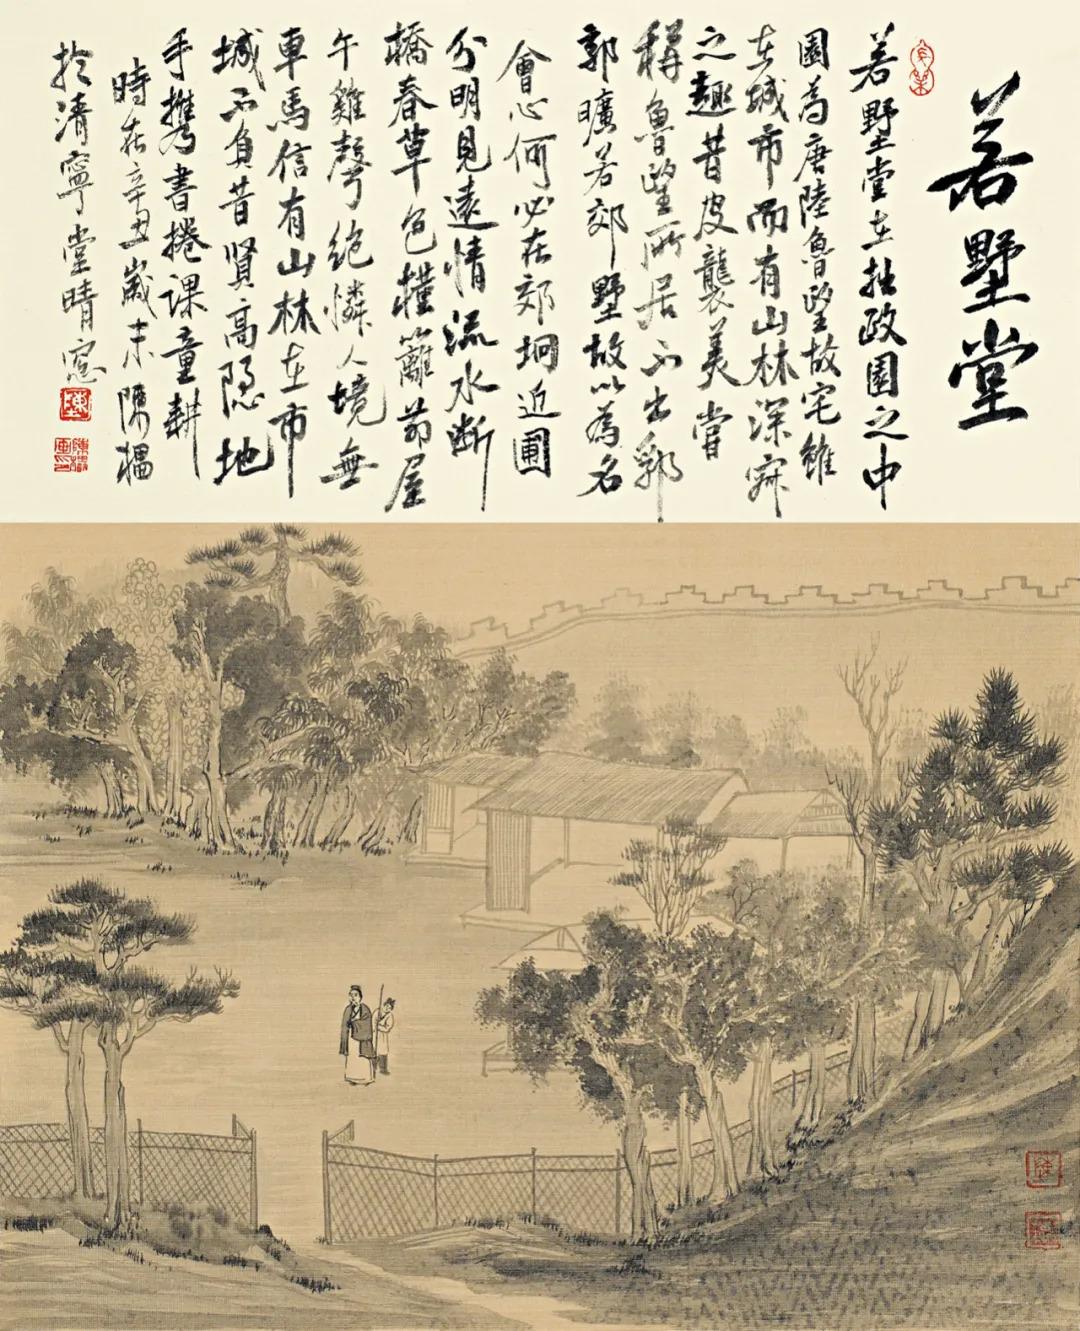 若墅堂
若墅堂在拙政園之中
園為唐陸魯望故宅雖
在城市而有山林深寂
之趣昔皮襲美嘗
稱魯望所居不出郛
郭曠若郊墅故以為名
會心何必在郊坰近圃
分明見遠情流水断
橋春草色槿籬茆屋
午雞聲絶憐人境無
車馬信有山林在市
城不負昔賢高隠地
手攜書捲課童耕
時在辛丑歲末陳
於清寧堂晴窓
陳